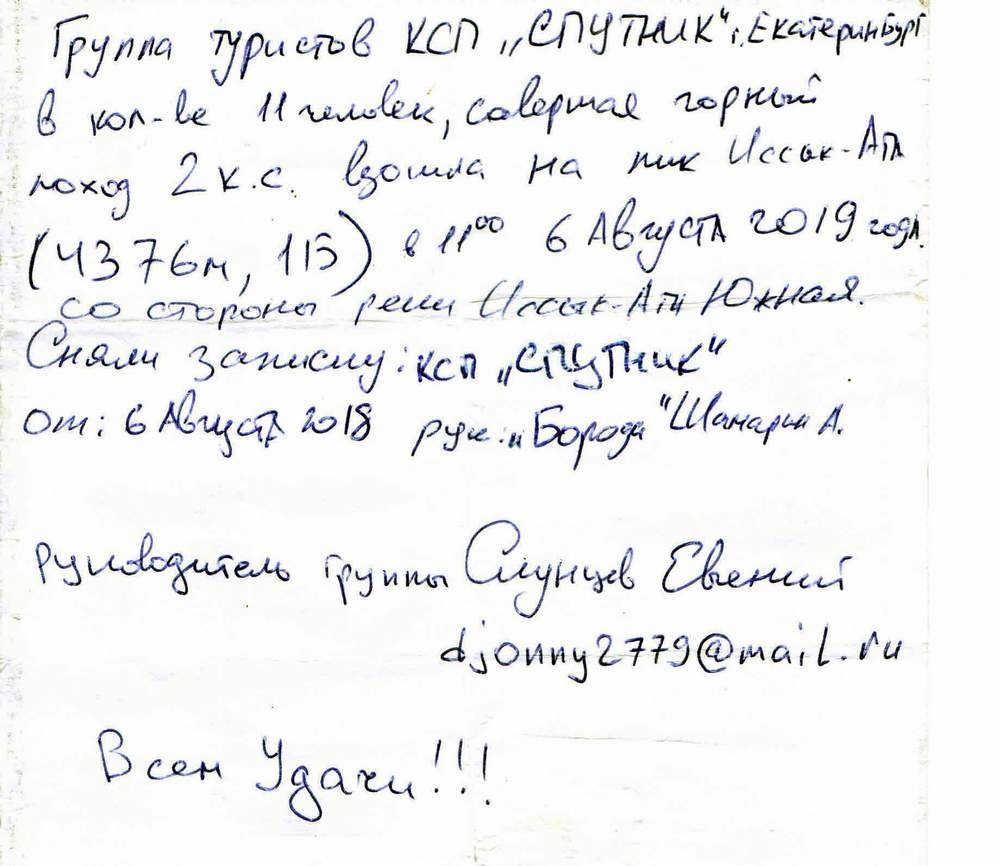 Группа туристов КСП „СПУТНИК“ г. Екатеринбург
в кол-ве 11 человек, совершая горный
поход 2 к.с. взошла на пик Иссык-Ата
(4376м, 1Б) в 11⁰⁰ 6 Августа 2019 года.
со стороны реки Иссык-Ата Южная.
Сняли записку: КСП „СПУТНИК“
от: 6 Августа 2018 рук: „Борода“ Шамарин А.
Руководитель группы Слунцев Евгений
djonny2779@mail.ru
Всем Удачи!!!